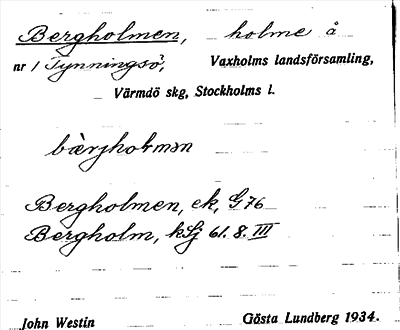 Bergholmen, holme å
nr 1 Tynningsö, Vaxholms landsförsamling,
Värmdö skg, Stockholms l.
bærjhol̀mən
Bergholmen, ek, G 76
Bergholm, kSj 61. 8. III
John Westin Gösta Lundberg 1934.